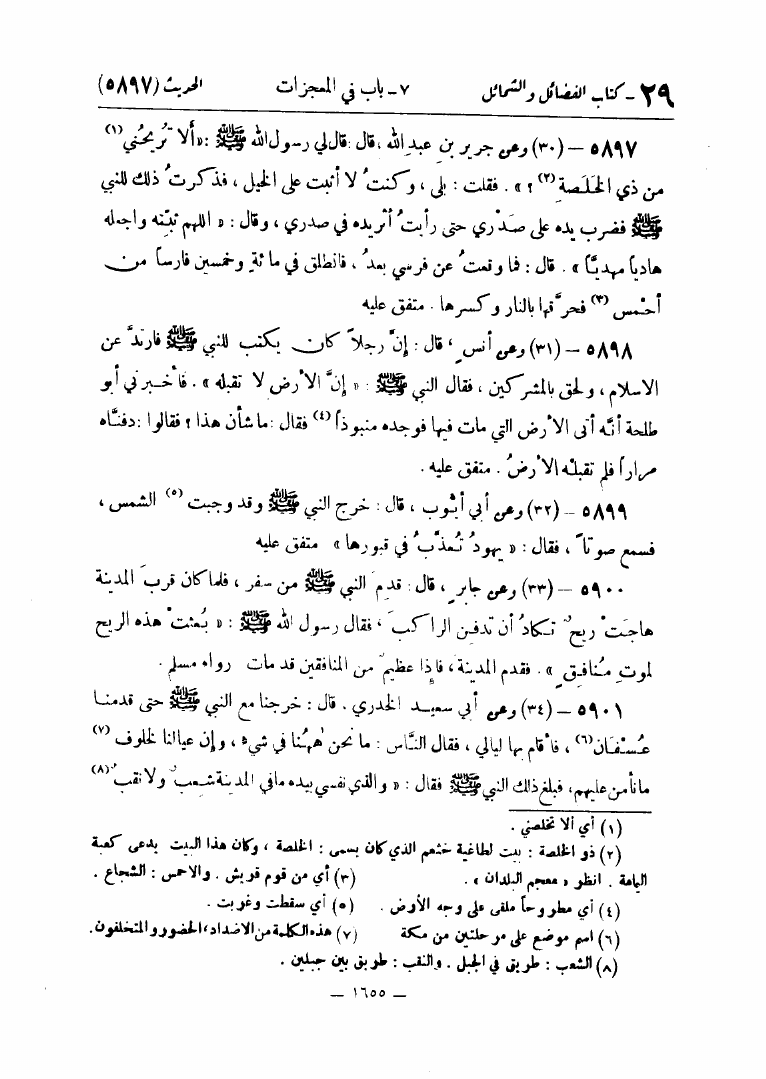 ٢٩ - كتاب الفضائل والشمائل ٧ - باب في المعجزات الحديث (٥٨٩٧)
٥٨٩٧ – (٣٠) وعن جرير بنِ عبدِ الله ، قال : قال لي رسول الله ﷺ : «ألا تُريحُني (١)
من ذي الخَلَصة (٢) ؟ » . فقلت : بلى ، وكنتُ لا أثبت على الخيل ، فذكرتُ ذلك للنبي
ﷺ فضرب يده على صَدْري حتى رأيتُ أثر يده في صدري ، وقال : « اللهم ثبّته واجعله
هادياً مهديّاً » . قال : فما وقعتُ عن فرسي بعدُ ، فانطلق في مائةٍ وخمسين فارساً من
أحْمس (٣) فحرَّقها بالنار وكسرها . متفق عليه
٥٨٩٨ – (٣١) وعن أنسٍ ، قال : إنَّ رجلاً كان يكتب للنبي ﷺ فارتدَّ عن
الاسلام ، ولحق بالمشركين ، فقال النبي ﷺ : « إنَّ الأرض لا تقبله » . فأخبرني أبو
طلحة أنَّه أتى الأرض التي مات فيها فوجده منبوذاً (٤) فقال : ما شأن هذا ؟ فقالوا : دفنَّاه
مراراً فلم تقبلْه الأرضُ . متفق عليه .
٥٨٩٩ – (٣٢) وعن أبي أيُّوب ، قال : خرج النبي ﷺ وقد وجبت (٥) الشمس ،
فسمع صوتاً ، فقال : « يهودُ تُعذَّبُ في قبورها » متفق عليه
٥٩٠٠ – (٣٣) وعن جابرٍ ، قال : قدمَ النبي ﷺ من سفر ، فلما كان قربَ المدينة
هاجَتْ ريحٌ تكادُ أن تدفِن الراكبَ ، فقال رسول الله ﷺ : « بُعثتْ هذه الريح
لموتِ مُنافِقٍ » . فقدم المدينةَ ، فإِذا عظيمٌ من المنافقين قد مات رواه مسلم .
٥٩٠١ – (٣٤) وعن أبي سعيد الخدري . قال : خرجنا مع النبي ﷺ حتى قدمنا
عُسْفان (٦) ، فأقام بها ليالي ، فقال النَّاس : ما نحن ههُنا في شيءٍ ، وإن عيالنا لخلوف (٧)
ما نأمن عليهم ، فبلغ ذلك النبي ﷺ فقال : « والذي نفسي بيده ما في المدينة شعبٌ ولا نقبٌ (٨)
(١) أي ألا تخلصني .
(٢) ذو الخلصة : بيت لطاغية خثعم الذي كان يسمى : الخلصة ، وكان هذا البيت يدعى كعبة
اليمامة . انظر « معجم البلدان » . (٣) أي من قوم قريش . والأحمس : الشجاع .
(٤) أي مطروحاً ملقى على وجه الأرض . (٥) أي سقطت وغربت .
(٦) اسم موضع على مرحلتين من مكة (٧) هذه الكلمة من الاضداد ، الحضور والمتخلفون .
(٨) الشعب : طريق في الجبل . والنقب : طريق بين جبلين .
– ١٦٥٥ –